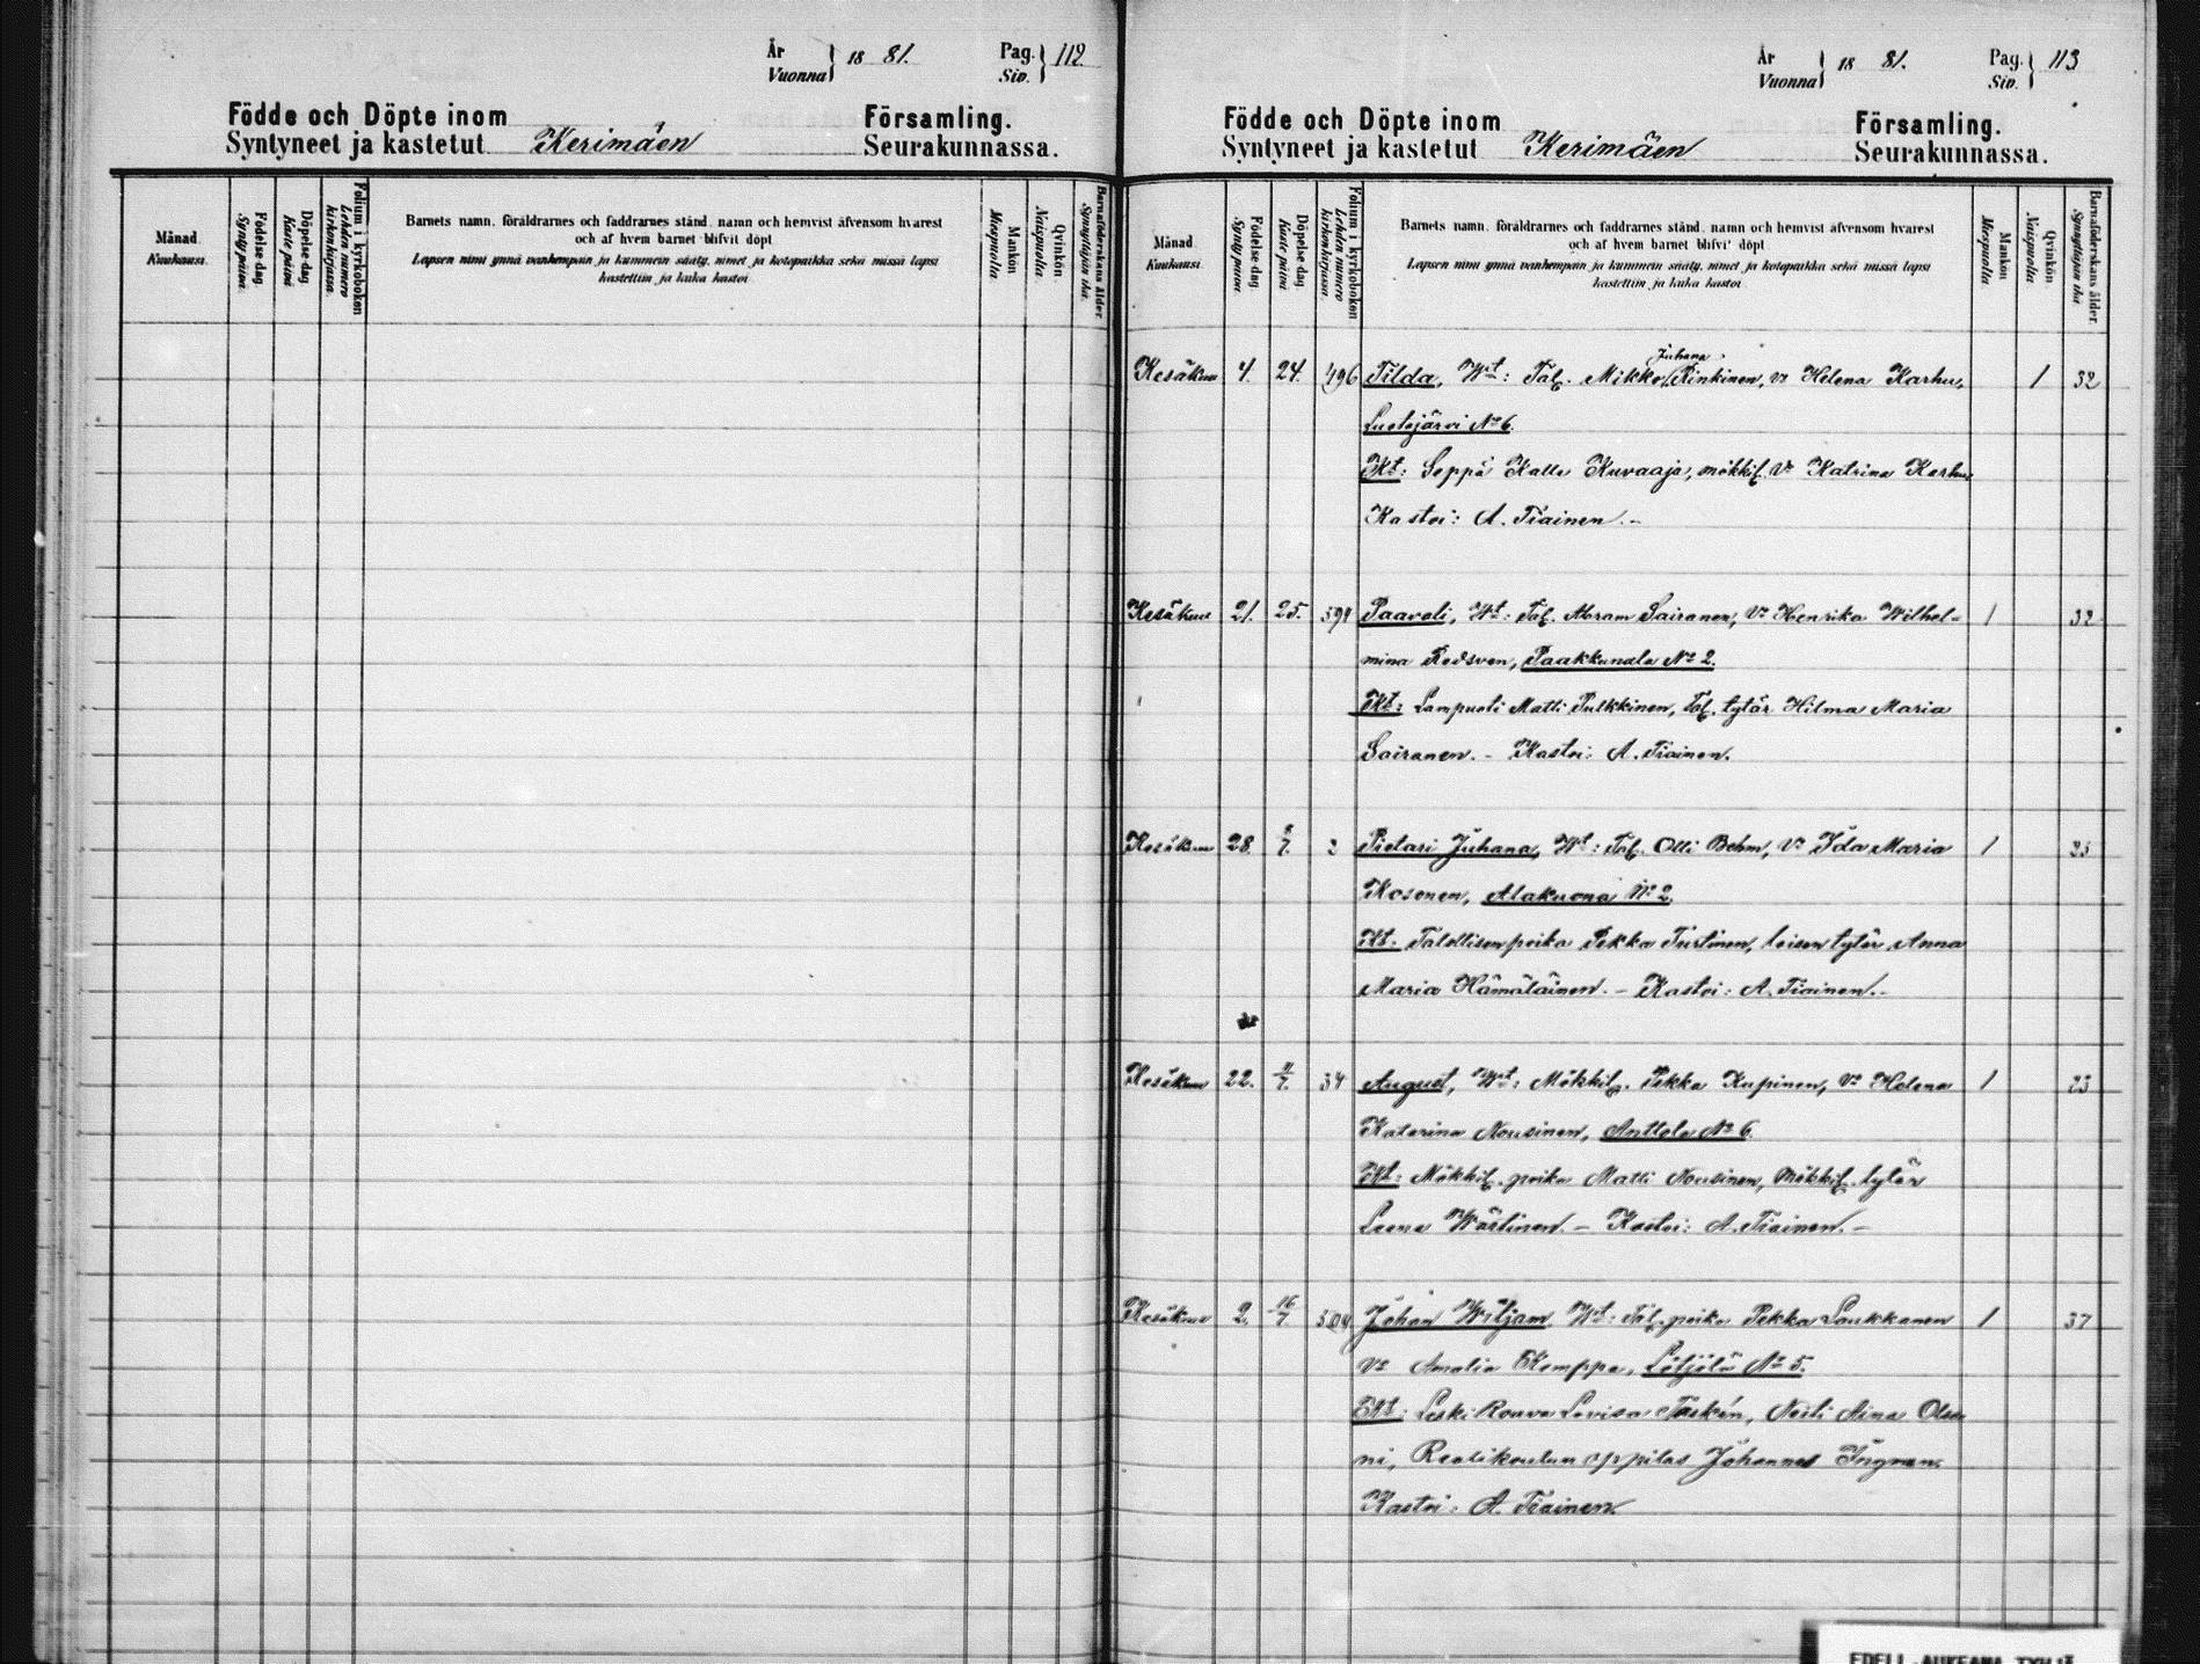 År
Vuonna } 18 81. Pag.
Siv. } 112.
Födde och Döpte inom Församling.
Syntyneet ja kastetut Kerimäen Seurakunnassa.
Månad. Kuukausi.
Födelse dag. Synty päivä.
Döpelse dag. Kaste päivä.
Folium i kyrkoboken Lehden numero kirkonkirjassa.
Barnets namn, föräldrarnes och faddrarnes stånd, namn och hemvist äfvensom hvarest
och af hvem barnet blifvit döpt
Lapsen nimi ynnä vanhempain ja kummein sääty, nimet ja kotopaikka sekä missä lapsi
kastettiin ja kuka kastoi
Mankön Miespuolta.
Qvinkön. Naispuolta.
Barnaföderskans ålder. Synnyttäjän ikä.
År
Vuonna } 18 81. Pag.
Siv. } 113
Födde och Döpte inom Församling.
Syntyneet ja kastetut Kerimäen Seurakunnassa.
Månad Kuukausi
Födelse dag. Synty päivä.
Döpelse dag. Kaste päivä.
Folium i kyrkoboken Lehden numero kirkonkirjassa.
Barnets namn, föräldrarnes och faddrarnes stånd, namn och hemvist äfvensom hvarest
och af hvem barnet blifvit döpt
Lapsen nimi ynnä vanhempain ja kummein sääty, nimet ja kotopaikka sekä missä lapsi
kastettiin ja kuka kastoi
Mankön Miespuolta
Qvinkön Naispuolta
Barnaföderskans ålder. Synnyttäjän ikä
Juhana
Kesäkuu 4. 24. 496 Tilda, Wt: Tal. Mikko Rinkinen, vo Helena Karhu, 1 32
Luotojärvi No 6.
Kt: Seppä Kalle Kuvaaja, mökkil. Vo Katrina Karhu
Kastoi: A. Tiainen.-
Kesäkuu 21. 25. 594 Paavali, Wt: Tal. Abram Sairanen, Vo Henrika Wilhel- 1 32
mina Redsven, Paakkunala No 2.
Kt: Lampuoti Matti Pulkkinen, Tal. tytär Hilma Maria
Sairanen.- Kastoi: A. Tiainen.
Kesäkuu 28. 7. 2 Pietari Juhana, Wt: Tal. Olli Behm, Vo Ida Maria 1
Kosonen, Alakuona No 2.
Kt. Talollisen poika Pekka Turtinen, loisen tytär Anna
Maria Hämäläinen.- Kastoi: A. Tiainen.-
Kesäkuu 22. 7. 34 August, Wt: Mökkil. Pekka Kupinen, Vo Helena 1 23
Katarina Nousinen, Anttola No 6.
Kt: Mökkil. poika Matti Nousinen, Mökkil. tytär
Leena Wärtinen.- Kastoi: A. Tiainen.-
Kesäkuu 2. 16/7. 504 Johan Wiljam, Wt: Tal. poika Pekka Laukkanen 1 37
Vo Amalia Kemppa, Lötjölä No 5.
Kt: Leski Rouva Lovisa Taskén, Neiti Aina Olso
ni, Realikoulun oppilas Johannes Ingman.
Kastoi: A. Tiainen.
EDELL. AUKEAMA TYHJÄ